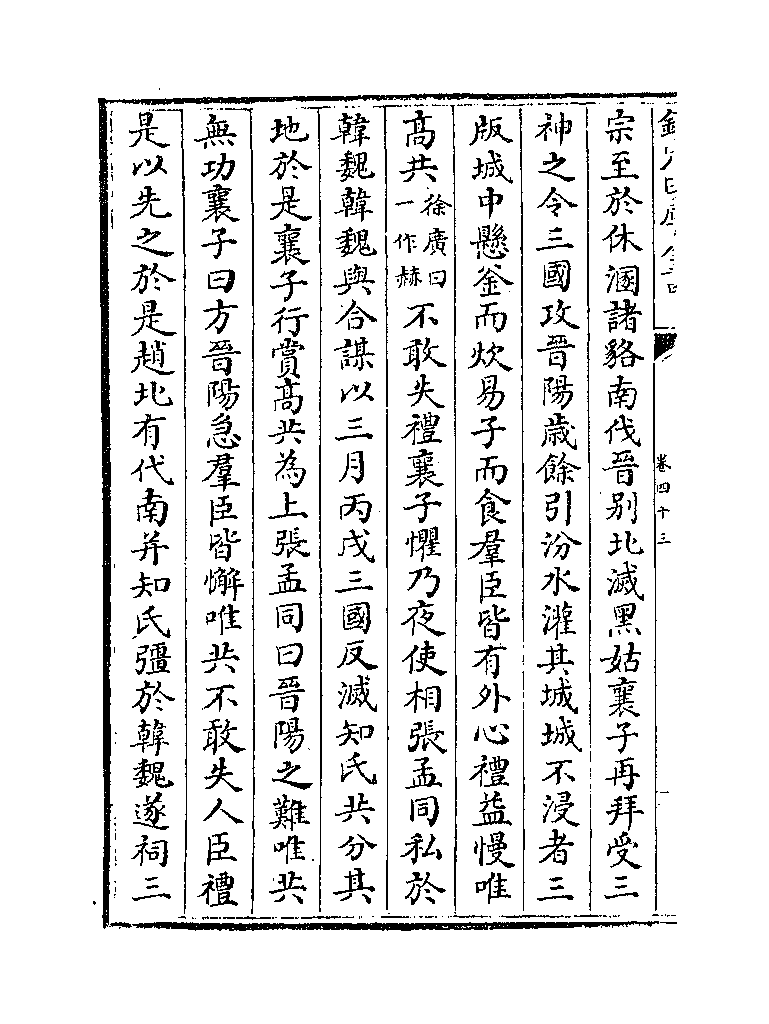 宗至於休溷諸貉南伐晉别北滅黑姑襄子再拜受三
神之令三國攻晉陽歲餘引汾水灌其城城不浸者三
版城中懸釜而炊易子而食羣臣皆有外心禮益慢唯
高共徐廣曰一作赫不敢失禮襄子懼乃夜使相張孟同私於
韓魏韓魏與合謀以三月丙戌三國反滅知氏共分其
地於是襄子行賞高共為上張孟同曰晉陽之難唯共
無功襄子曰方晉陽急羣臣皆懈唯共不敢失人臣禮
是以先之於是趙北有代南并知氏彊於韓魏遂祠三
卷四十三